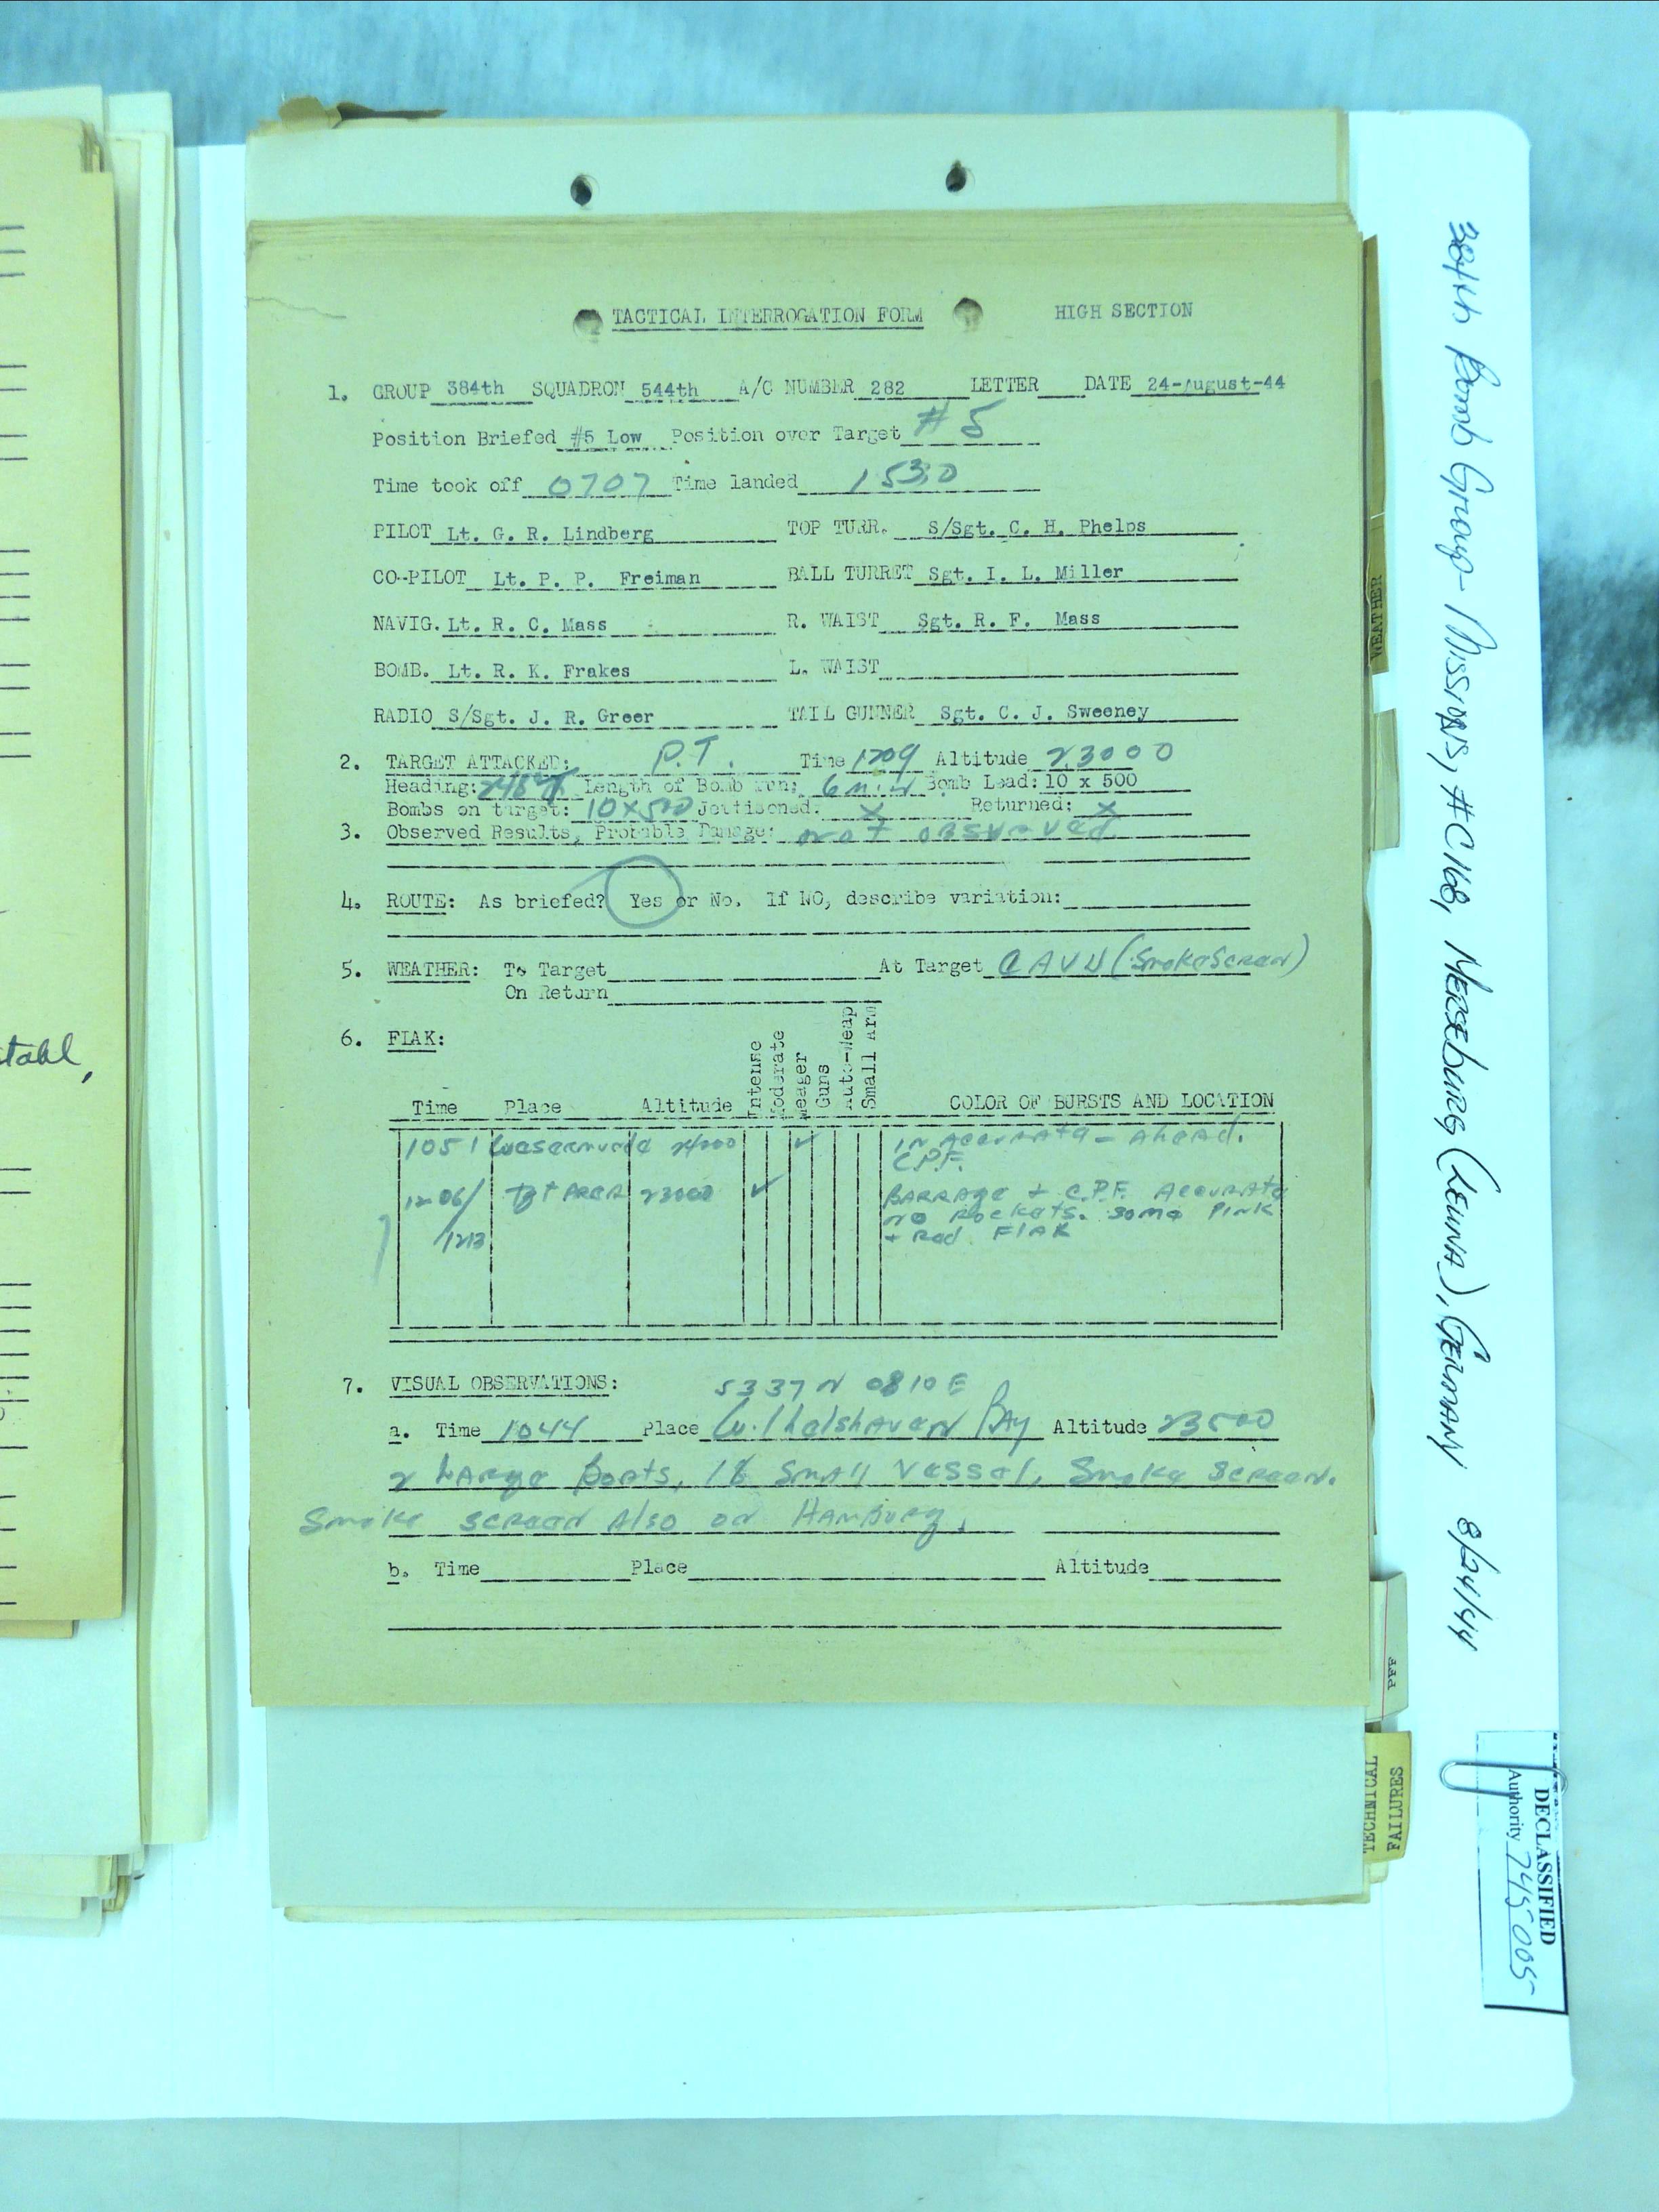 TACTICAL INTERROGATION FORM HIGH SECTION
1. GROUP 384th SQUADRON 544th A/C NUMBER 282 LETTER DATE 24-August-44
Position Briefed #5 Low Position over Target #5
Time took off 0707 Time landed 1530
PILOT Lt. G. R. Lindberg TOP TURR. S/Sgt. C. H. Phelps
CO-PILOT Lt. P. P. Freiman BALL TURRET Sgt. I. L. Miller
NAVIG. Lt. R. C. Mass R. WAIST Sgt. R. F. Mass
BOMB. Lt. R. K. Frakes L. WAIST
RADIO S/Sgt. J. R. Greer TAIL GUNNER Sgt. C. J. Sweeney
2. TARGET ATTACKED: P.T. Time 1209 Altitude 23000
Heading: Length of Bomb run: 6 min Bomb Load: 10 x 500
Bombs on target: 10x500 Jettisoned: X Returned: X
3. Observed Results, Probable Damage: not observed
4. ROUTE: As briefed? Yes or No. If NO, describe variation:
5. WEATHER: To Target At Target CAVU (Smoke Screen)
On Return
6. FLAK:
Intense
Moderate
Meager
Guns
Auto-Weap
Small Arm
Time Place Altitude COLOR OF BURSTS AND LOCATION
1051 24000 ✓ inaccurate - ahead.
C.P.F.
1206/ Tgt Area 23000 ✓ Barrage + C.P.F. Accurate
no rockets. some Pink
/1213 + Red Flak
7. VISUAL OBSERVATIONS: 5337N 0810E
a. Time 1044 Place Wilhelshaven Bay Altitude 23500
2 Large Boats, 18 Small Vessel, Smoke Screen.
Smoke screen Also on Hamburg.
b. Time Place Altitude
384th Bomb Group - Missions, #C168, Merseburg (Leuna), Germany 8/24/44
WEATHER
PFF
TECHNICAL
FAILURES
DECLASSIFIED
Authority 745005
stahl,